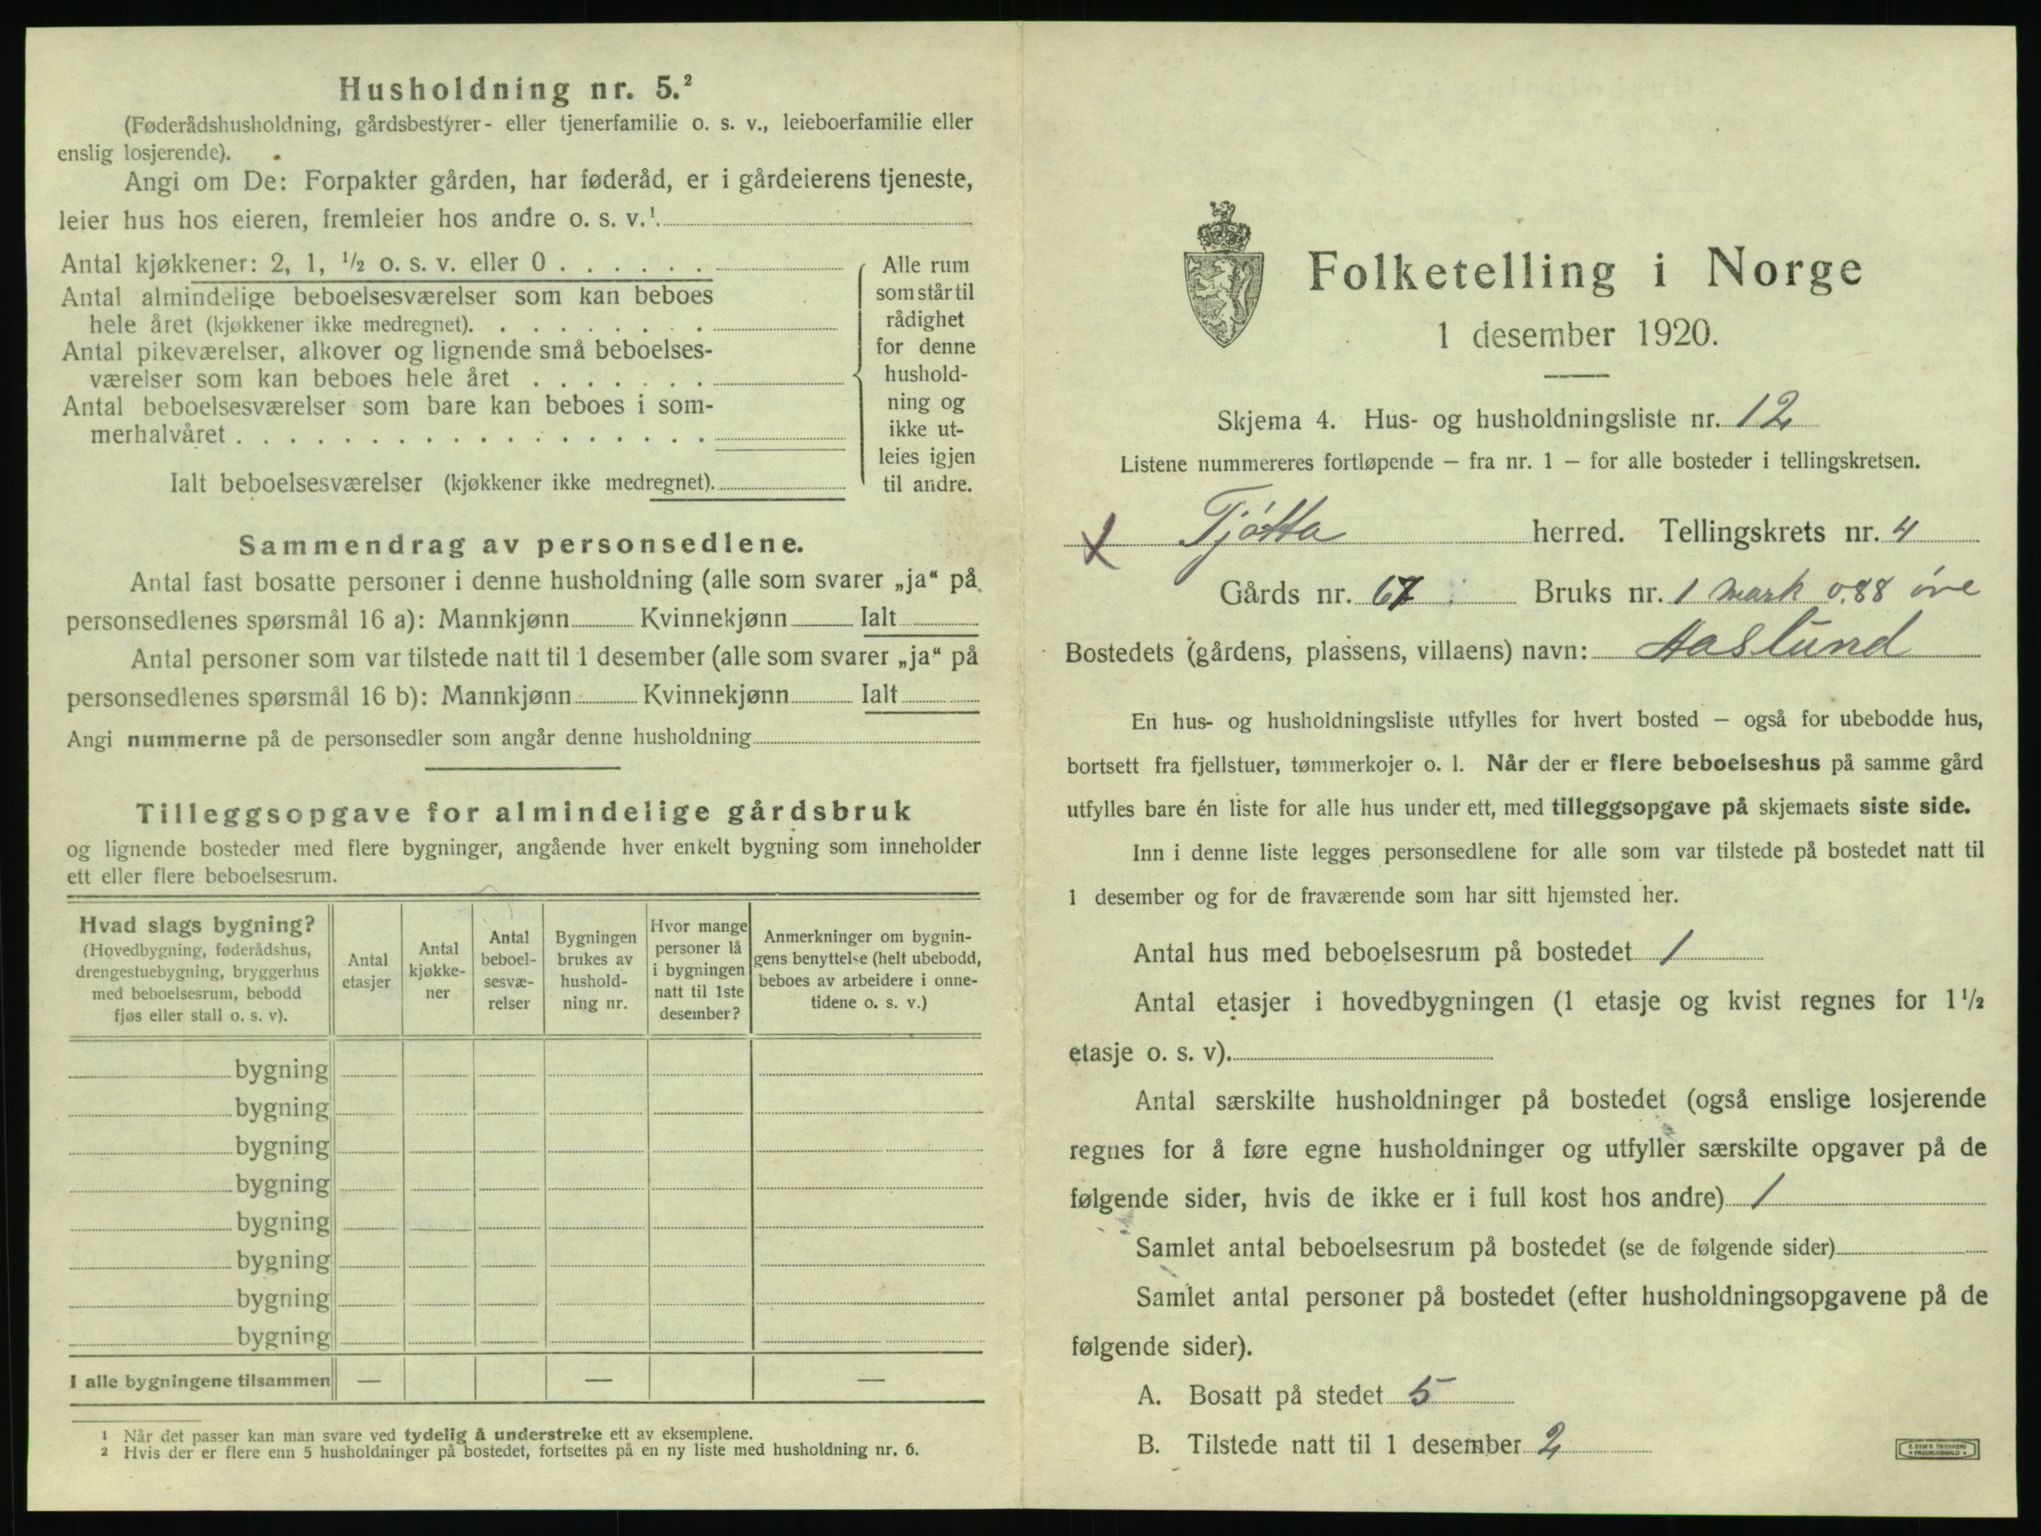 Husholdning nr. 5.²
(Føderådshusholdning, gårdsbestyrer- eller tjenerfamilie o. s. v., leieboerfamilie eller
enslig losjerende).
Angi om De: Forpakter gården, har føderåd, er i gårdeierens tjeneste,
leier hus hos eieren, fremleier hos andre o. s. v.¹
Antal kjøkkener: 2, 1, ½ o. s. v. eller 0
Antal almindelige beboelsesværelser som kan beboes
hele året (kjøkkener ikke medregnet).
Antal pikeværelser, alkover og lignende små beboelses-
værelser som kan beboes hele året
Antal beboelsesværelser som bare kan beboes i som-
merhalvåret
Ialt beboelsesværelser (kjøkkener ikke medregnet).
Alle rum
som står til
rådighet
for denne
hushold-
ning og
ikke ut-
leies igjen
til andre.
Sammendrag av personsedlene.
Antal fast bosatte personer i denne husholdning (alle som svarer „ja“ på
personsedlenes spørsmål 16 a): Mannkjønn Kvinnekjønn Ialt
Antal personer som var tilstede natt til 1 desember (alle som svarer „ja“ på
personsedlenes spørsmål 16 b): Mannkjønn Kvinnekjønn Ialt
Angi nummerne på de personsedler som angår denne husholdning
Tilleggsopgave for almindelige gårdsbruk
og lignende bosteder med flere bygninger, angående hver enkelt bygning som inneholder
ett eller flere beboelsesrum.
Hvad slags bygning?
(Hovedbygning, føderådshus,
drengestuebygning, bryggerhus
med beboelsesrum, bebodd
fjøs eller stall o. s. v).
Antal
etasjer
Antal
kjøkke-
ner
Antal
beboel-
sesvæ-
relser
Bygningen
brukes av
hushold-
ning nr.
Hvor mange
personer lå
i bygningen
natt til 1ste
desember?
Anmerkninger om bygnin-
gens benyttelse (helt ubebodd,
beboes av arbeidere i onne-
tidene o. s. v.)
bygning
bygning
bygning
bygning
bygning
bygning
bygning
bygning
I alle bygningene tilsammen — — —
¹ Når det passer kan man svare ved tydelig å understreke ett av eksemplene.
² Hvis der er flere enn 5 husholdninger på bostedet, fortsettes på en ny liste med husholdning nr. 6.
Folketelling i Norge
1 desember 1920.
Skjema 4. Hus- og husholdningsliste nr. 12
Listene nummereres fortløpende — fra nr. 1 — for alle bosteder i tellingskretsen.
Tjøtta herred. Tellingskrets nr. 4
Gårds nr. 67 Bruks nr. 1 mark 0.88 øre
Bostedets (gårdens, plassens, villaens) navn: Aaslund
En hus- og husholdningsliste utfylles for hvert bosted — også for ubebodde hus,
bortsett fra fjellstuer, tømmerkojer o. l. Når der er flere beboelseshus på samme gård
utfylles bare én liste for alle hus under ett, med tilleggsopgave på skjemaets siste side.
Inn i denne liste legges personsedlene for alle som var tilstede på bostedet natt til
1 desember og for de fraværende som har sitt hjemsted her.
Antal hus med beboelsesrum på bostedet 1
Antal etasjer i hovedbygningen (1 etasje og kvist regnes for 1½
etasje o. s. v).
Antal særskilte husholdninger på bostedet (også enslige losjerende
regnes for å føre egne husholdninger og utfyller særskilte opgaver på de
følgende sider, hvis de ikke er i full kost hos andre) 1
Samlet antal beboelsesrum på bostedet (se de følgende sider)
Samlet antal personer på bostedet (efter husholdningsopgavene på de
følgende sider).
A. Bosatt på stedet 5
B. Tilstede natt til 1 desember 2